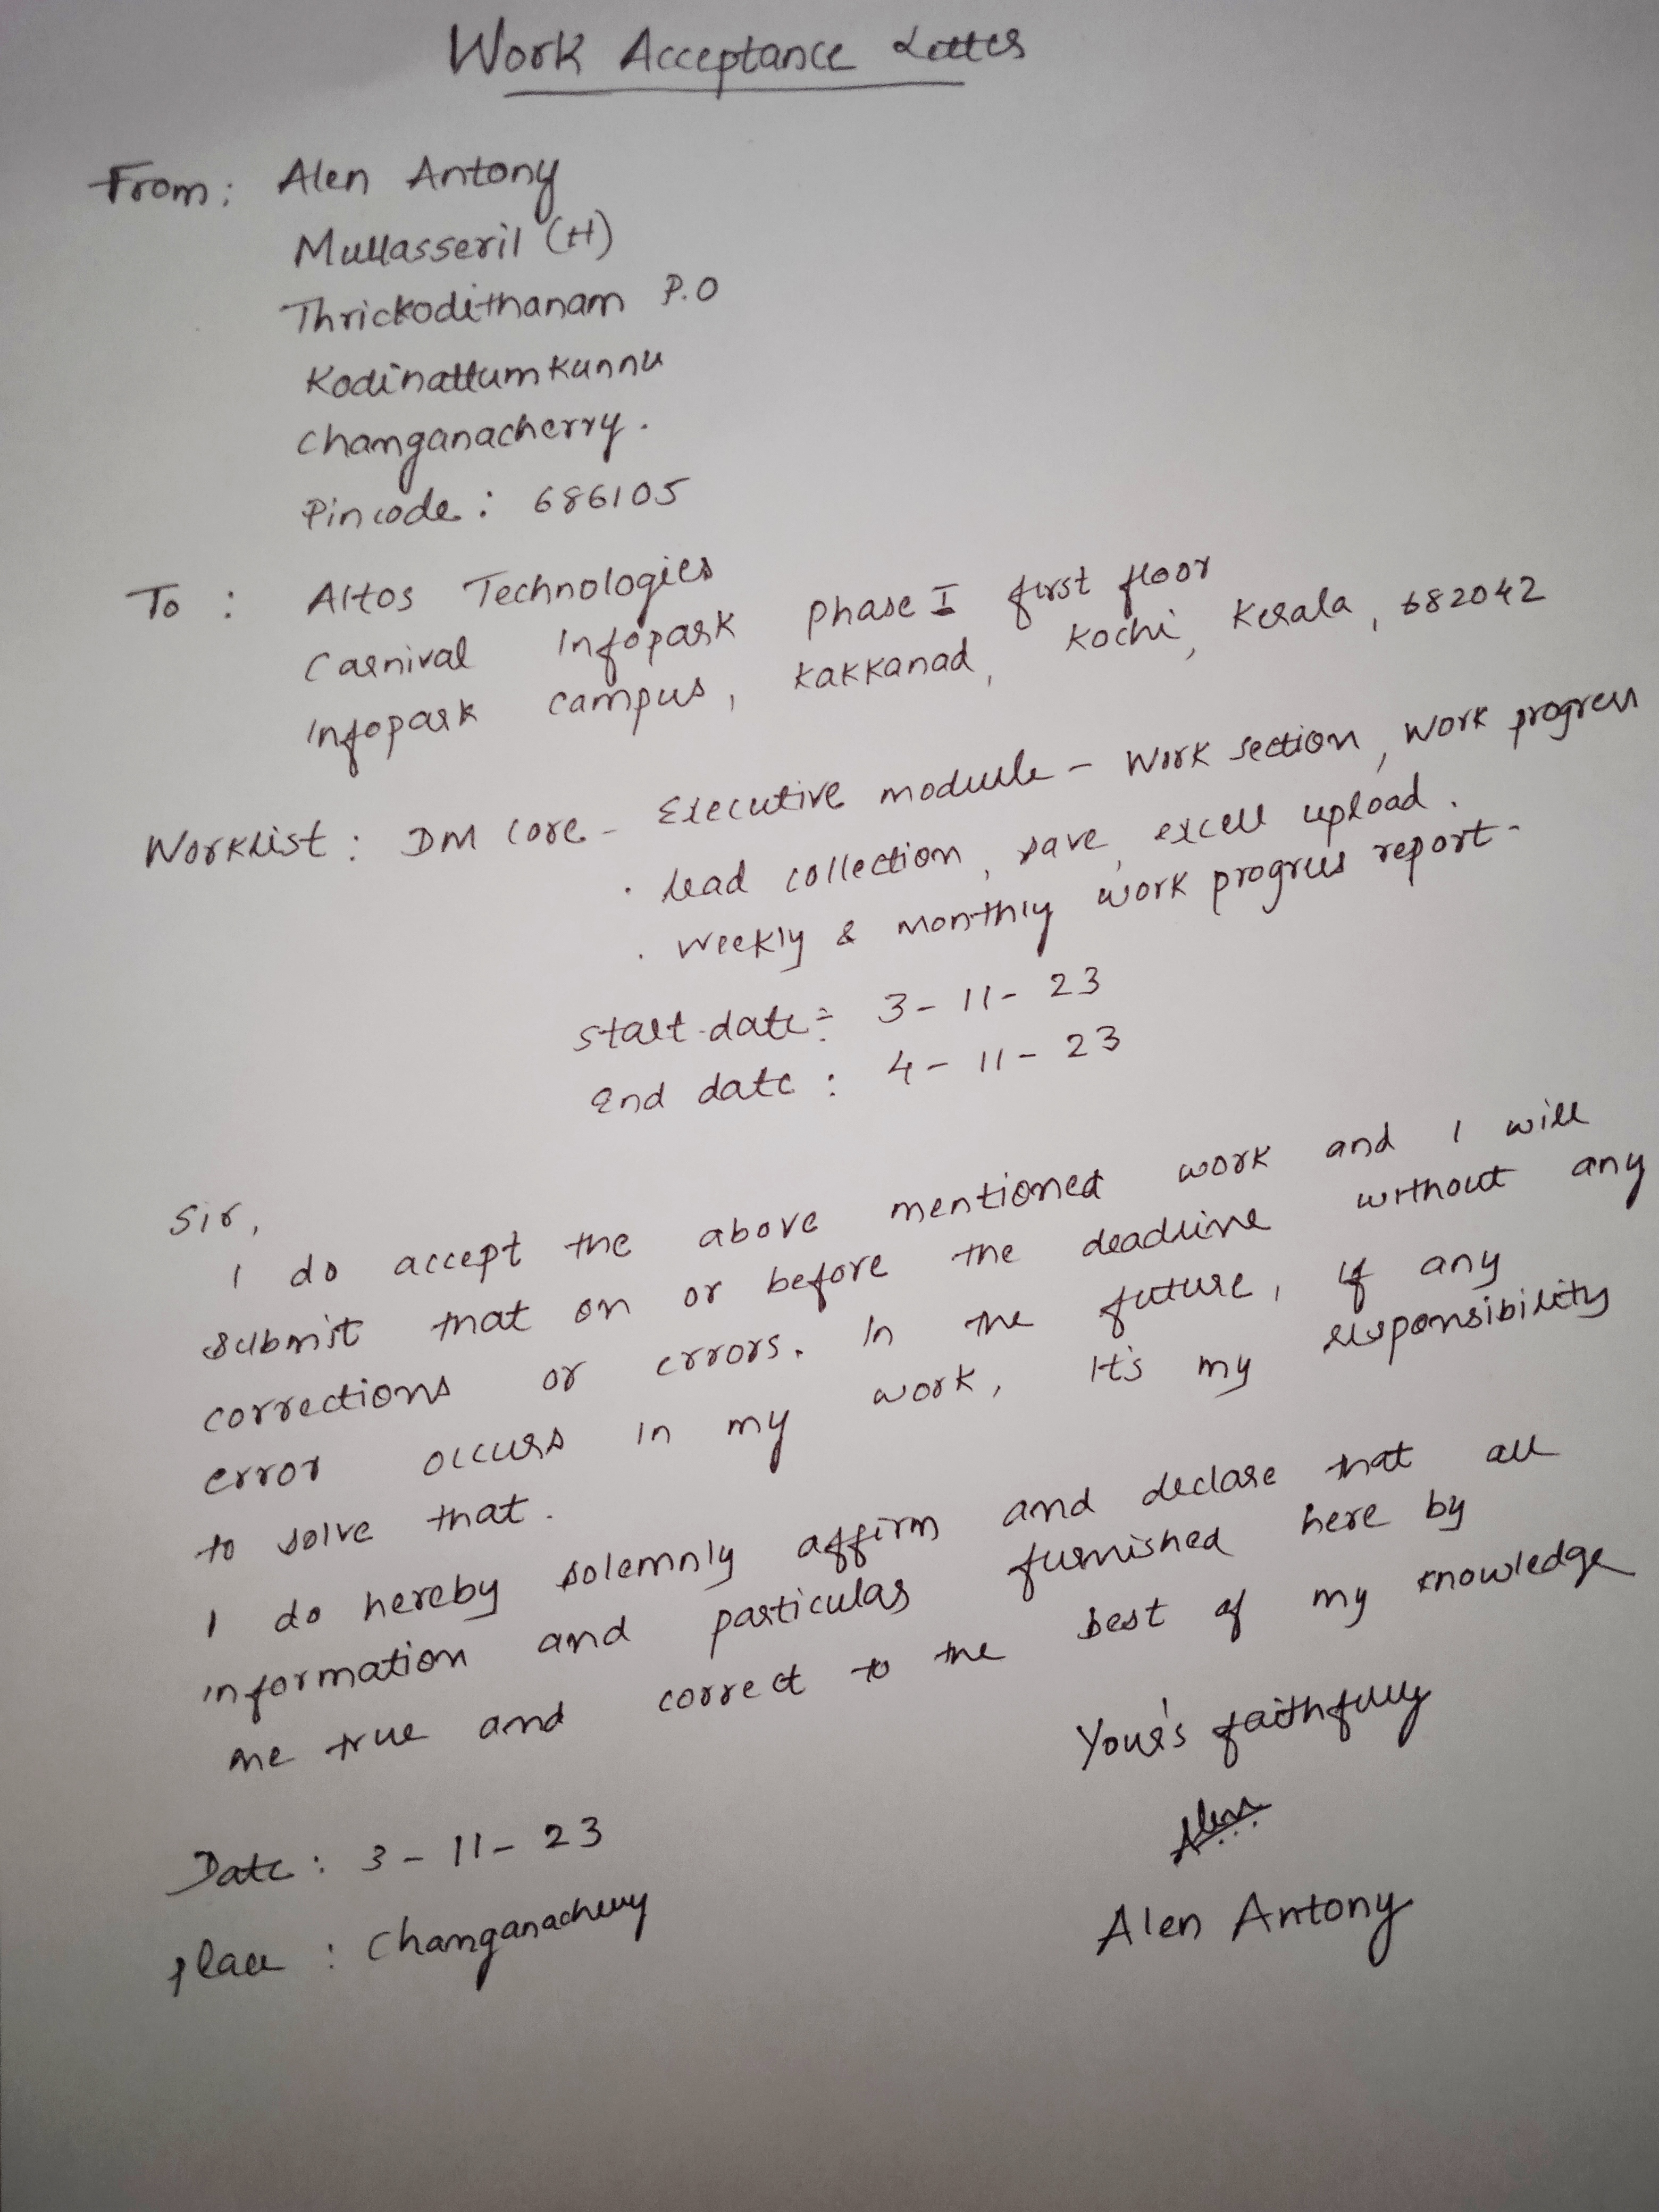 Work Acceptance Letter
From: Alen Antony
Mullasseril (H)
Thrickodithanam P.O
Kodinattumkunnu
Changanacherry.
Pincode: 686105
To : Altos Technologies
Carnival Infopark Phase I first floor
Infopark campus, Kakkanad, Kochi, Kerala, 682042
Worklist: DM Core - Executive module - Work section, work progress
. Lead collection, save, excell upload.
. Weekly & Monthly work progress report-
Start date: 3-11-23
End date: 4-11-23
Sir,
I do accept the above mentioned work and I will
submit that on or before the deadline without any
corrections or errors. In the future, if any
error occurs in my work, It's my responsibility
to solve that.
I do hereby solemnly affirm and declare that all
information and particular furnished here by
me true and correct to the best of my knowledge
Your's faithfully
Alen
Alen Antony
Date: 3-11-23
Place: Changanacherry